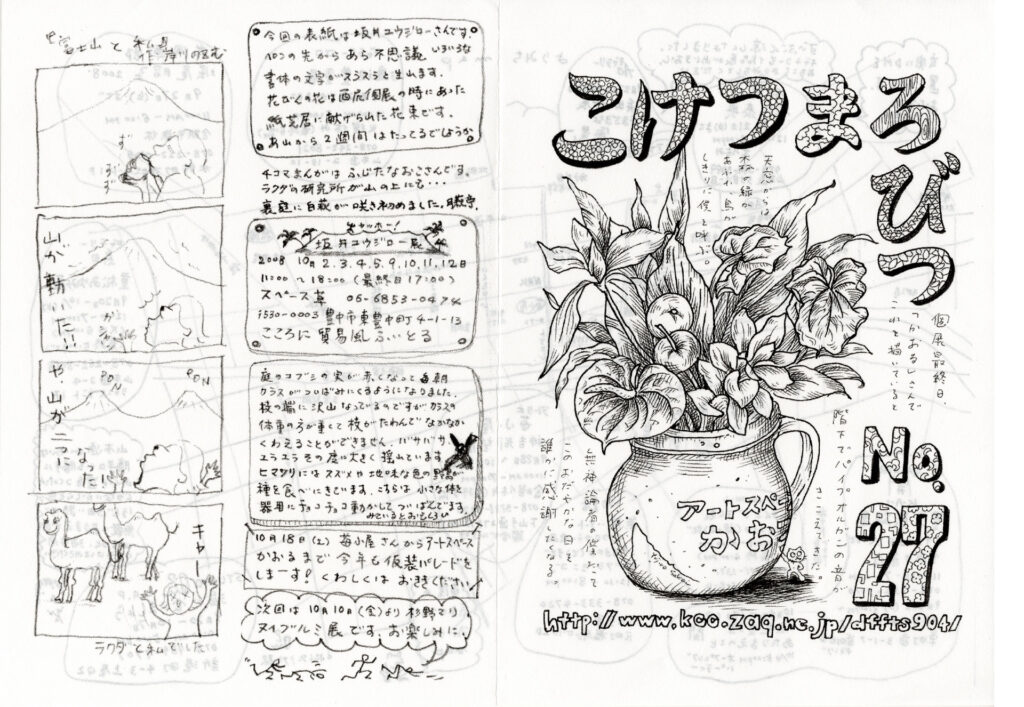 こけつまろびつ
No.
27
天窓からは
森の緑が
しきりに僕を呼ぶ。
個展最終日、
「かおる」さんで
これを描いていると
階下でパイプオルガンの音が
きこえてきた。
無神論者の僕だって
このおだやかな日を
誰かに感謝したくなる。
アートスペース
かお
http://www.kcc.zaq.ne.jp/dffts904/
富士山と私
作 岸川のぞむ
ず
ず
ず
山が動いた!!
や、山が二つに
なった
PON
PON
キャー
ラクダと私でした
今回の表紙は坂井ユウジローさんです。
ペンの先からあら不思議 いろいろな
書体の文字がスラスラと生れます。
花びんの花は画廊個展の時にあった
紙芝居に献げられた花束です。
あれから2週間はたってるでしょうか
4コマまんがはふじたなおこさんです。
ラクダの研究所が山の上にも・・・
裏庭に白萩が咲き初めました。
ヤッホー!
坂井ユウジロー展
2008 10月2.3.4.5.9.10.11.12日
11:00～18:00 (最終日17:00)
スペース草 06-6853-0474
〒530-0003 豊中市東豊中町4-1-13
こころに貿易風ふいとる
庭のコブシの実が赤くなって毎朝
カラスがついばみにくるようになりました。
枝の端に沢山なっているのですがカラスの
体重の方が重くて枝がたわんでなかなか
くわえることができません。バサバサ
ユラユラその度に大きく揺れています
ヒマワリにはスズメや地味な色の野鳥が
種を食べにきています。こちらは小さな体を
器用にチョコチョコ動かしてついばんでます。
みているとおもしろい
10月18日(土) 苺小屋さんからアートスペース
かおるまで今年も仮装パレードを
しまーす! くわしくはおききください
次回は10月10日(金)より杉野マリ
ヌイグルミ展です。お楽しみに。